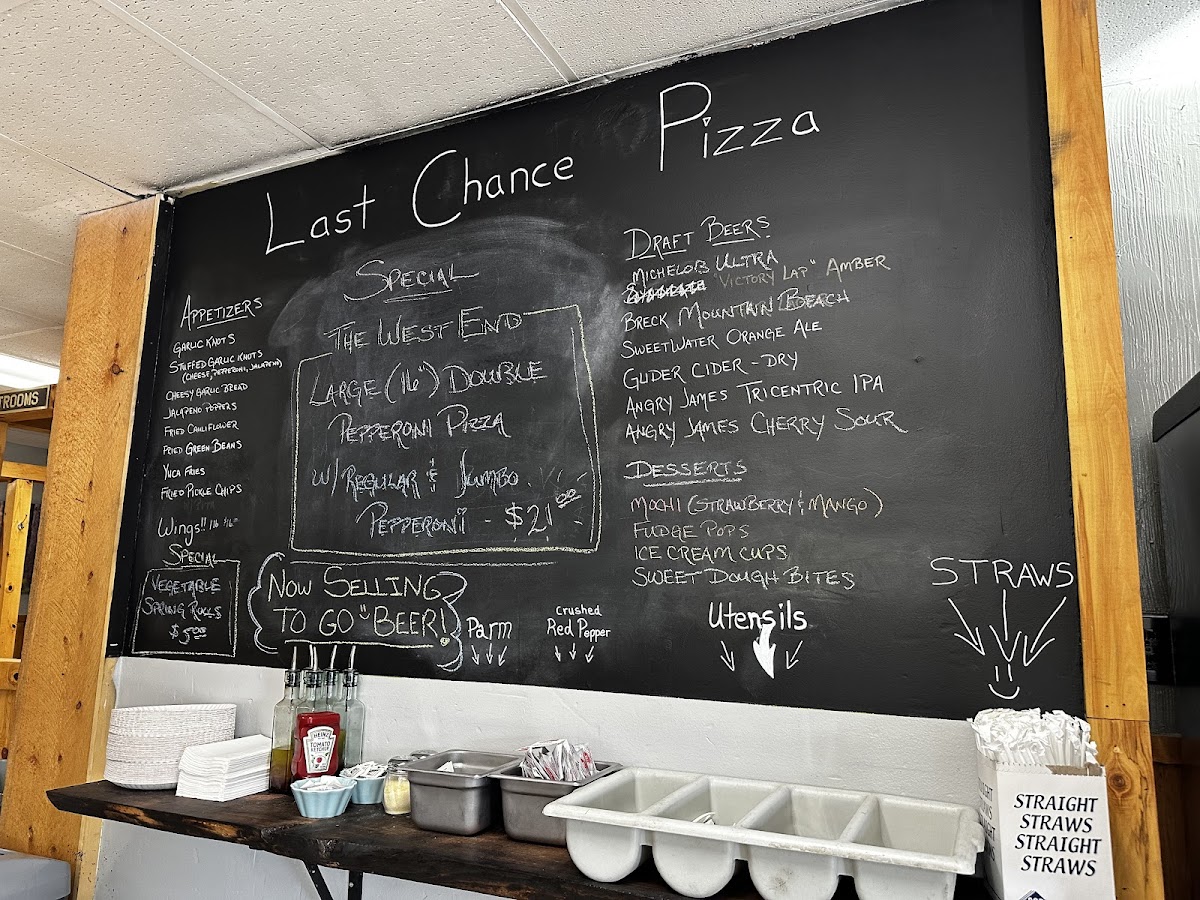 Last Chance Pizza
TROOMS
APPETIZERS
GARLIC KNOTS
STUFFED GARLIC KNOTS
(CHEESE, PEPPERONI, JALAPENO)
CHEESY GARLIC BREAD
JALAPENO POPPERS
FRIED CAULIFLOWER
FRIED GREEN BEANS
YUCA FRIES
FRIED PICKLE CHIPS
Wings!!
SPECIAL
VEGETABLE
SPRING ROLLS
$5.00
SPECIAL
THE WEST END
LARGE (16") DOUBLE
PEPPERONI PIZZA
W/ REGULAR & JUMBO
PEPPERONI - $21.00
NOW SELLING
TO GO "BEER!
DRAFT BEERS
MICHELOB ULTRA
"VICTORY LAP" AMBER
BRECK MOUNTAIN BEACH
SWEETWATER ORANGE ALE
GLIDER CIDER - DRY
ANGRY JAMES TRICENTRIC IPA
ANGRY JAMES CHERRY SOUR
DESSERTS
MOCHI (STRAWBERRY & MANGO)
FUDGE POPS
ICE CREAM CUPS
SWEET DOUGH BITES
Parm
Crushed
Red Pepper
Utensils
STRAWS
HEINZ
TOMATO
KETCHUP
STRAIGHT
STRAWS
STRAIGHT
STRAWS